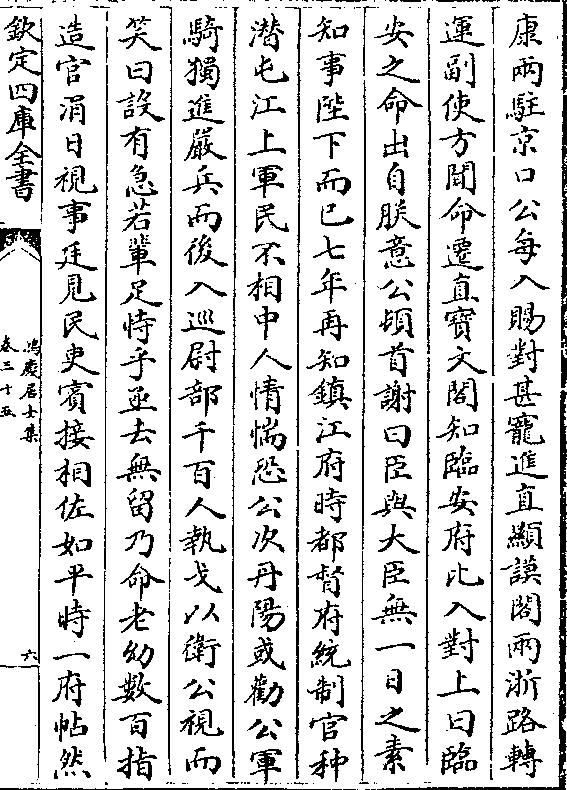 康兩駐京口公每入賜對甚寵進直顯謨閣兩浙路轉
運副使方聞命遷直寶文閣知臨安府比入對上曰臨
安之命出自朕意公頓首謝曰臣與大臣無一日之素
知事陛下而已七年再知鎮江府時都督府統制官种
潛屯江上軍民不相中人情惴恐公次丹陽或勸公軍
騎獨進嚴兵而後入巡尉部千百人執戈以衛公視而
笑曰設有急若輩足恃乎亟去無留乃命老幼數百指
造官涓日視事廷見民吏賓接相佐如平時一府帖然
欽定四庫全書
鴻慶居士集
卷三十五
六